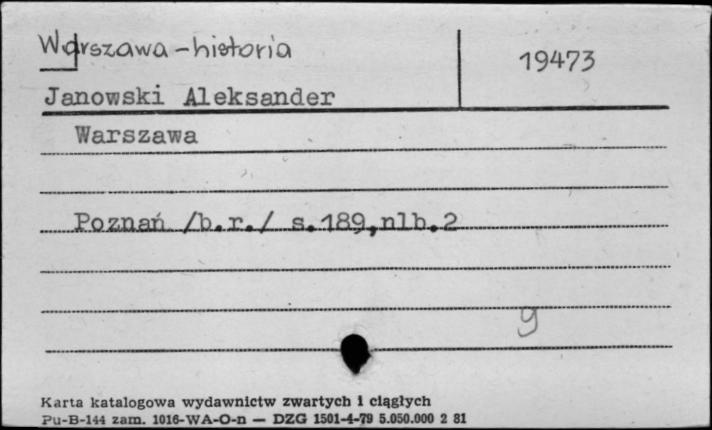 Warszawa-historia
19473
Janowski Aleksander
Warszawa
Poznań /b.r./ s.189,nlb.2
g
Karta katalogowa wydawnictw zwartych i ciągłych
Pu-B-144 zam. 1016-WA-O-n — DZG 1501-4-79 5.050.000 2 81